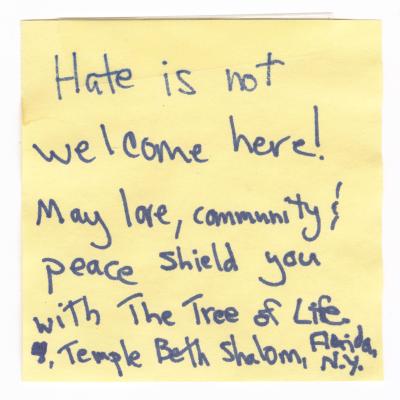 Hate is not
welcome here!
May love, community &
peace shield you
with The Tree of Life.
, Temple Beth Shalom, Florida,
N.Y.